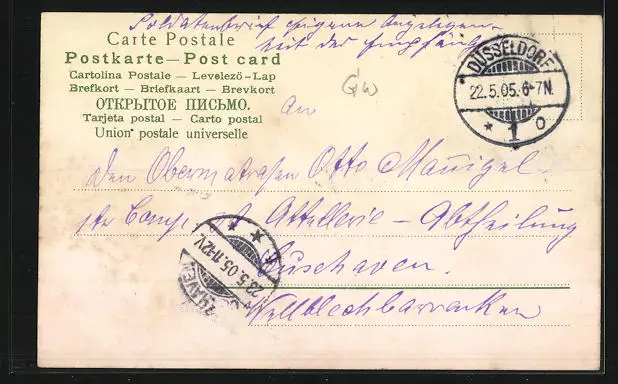 Soldatenbrief eigene Angelegen-
heit des Empfängers
Carte Postale
Postkarte — Post card
Cartolina Postale — Levelező-Lap
Brefkort — Briefkaart — Brevkort
ОТКРЫТОЕ ПИСЬМО.
Tarjeta postal — Carto postal
Union postale universelle
DÜSSELDORF
22.5.05.6-7N.
* 1 o
An
den Obermatrosen Otto
Comp. Artillerie - Abtheilung
Cuxhaven.
Wellblechbarracken